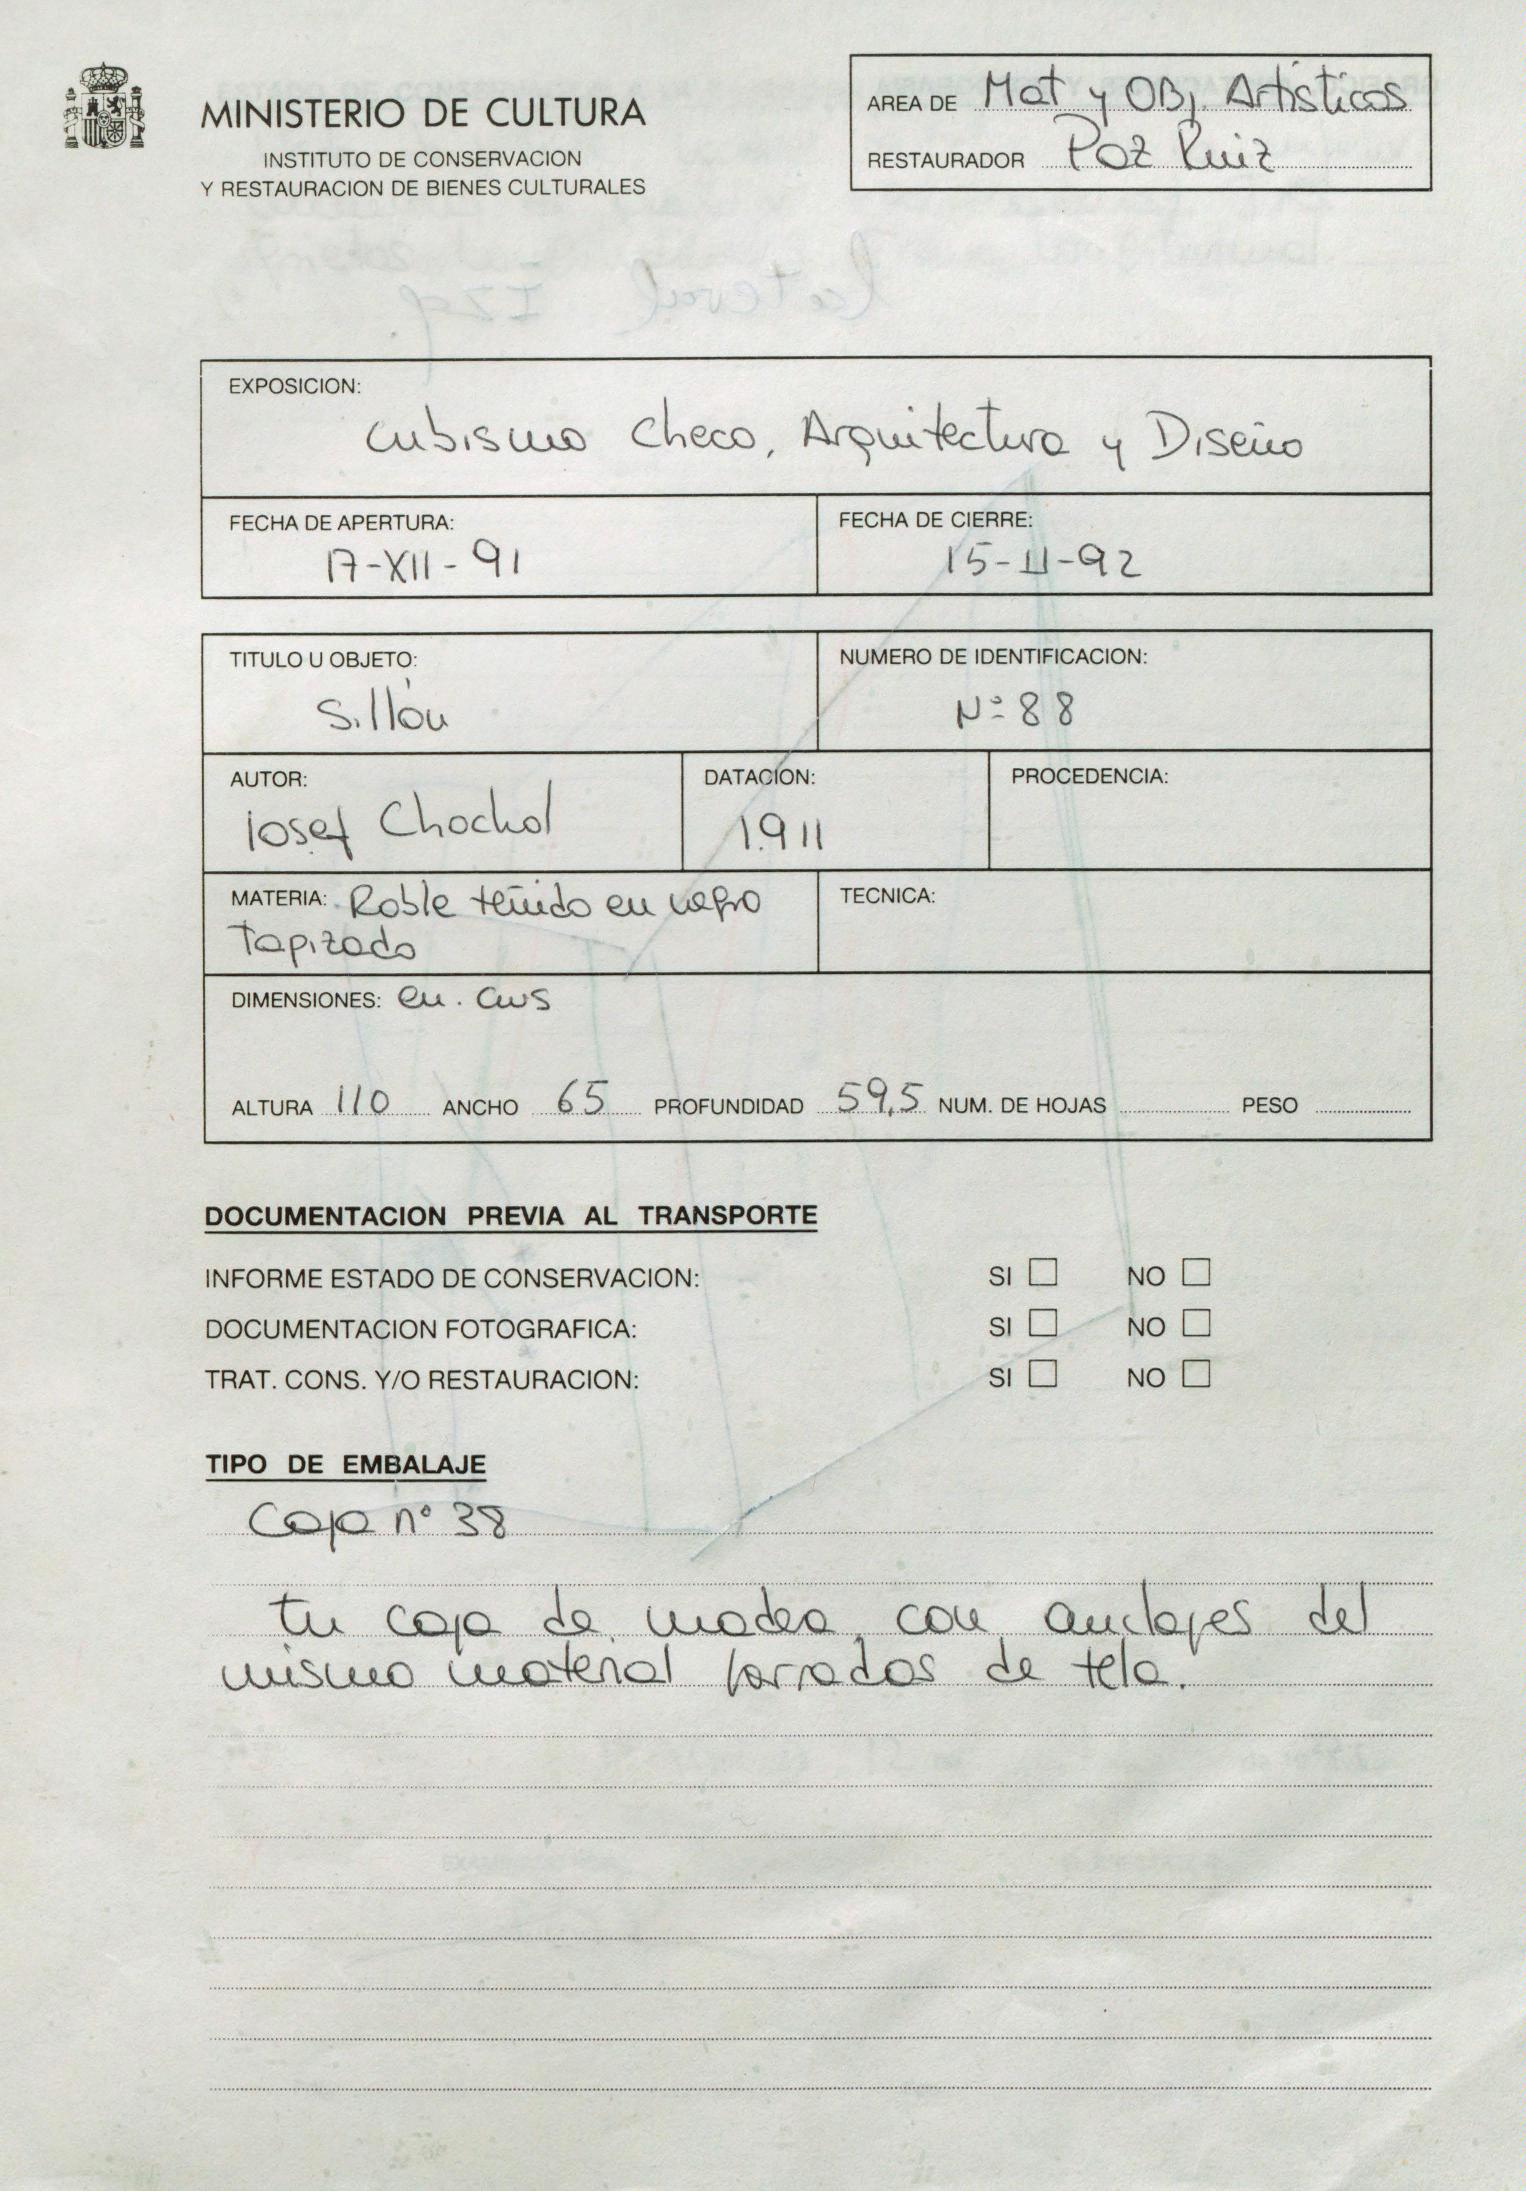 MINISTERIO DE CULTURA
INSTITUTO DE CONSERVACION
Y RESTAURACION DE BIENES CULTURALES
AREA DE Mat y OBj. Artísticos
RESTAURADOR Paz Ruiz
EXPOSICION:
cubismo checo, Arquitectura y Diseño
FECHA DE APERTURA:
17-XII-91
FECHA DE CIERRE:
15-II-92
TITULO U OBJETO:
Sillón
NUMERO DE IDENTIFICACION:
Nº 88
AUTOR:
iosef Chochol
DATACION:
1.911
PROCEDENCIA:
MATERIA: Roble teñido en negro
Tapizado
TECNICA:
DIMENSIONES: en. cms
ALTURA 110 ANCHO 65 PROFUNDIDAD 59,5 NUM. DE HOJAS PESO
DOCUMENTACION PREVIA AL TRANSPORTE
INFORME ESTADO DE CONSERVACION: SI NO
DOCUMENTACION FOTOGRAFICA: SI NO
TRAT. CONS. Y/O RESTAURACION: SI NO
TIPO DE EMBALAJE
Caja nº 38
En caja de madera, con anclajes del
mismo material forrados de tela.